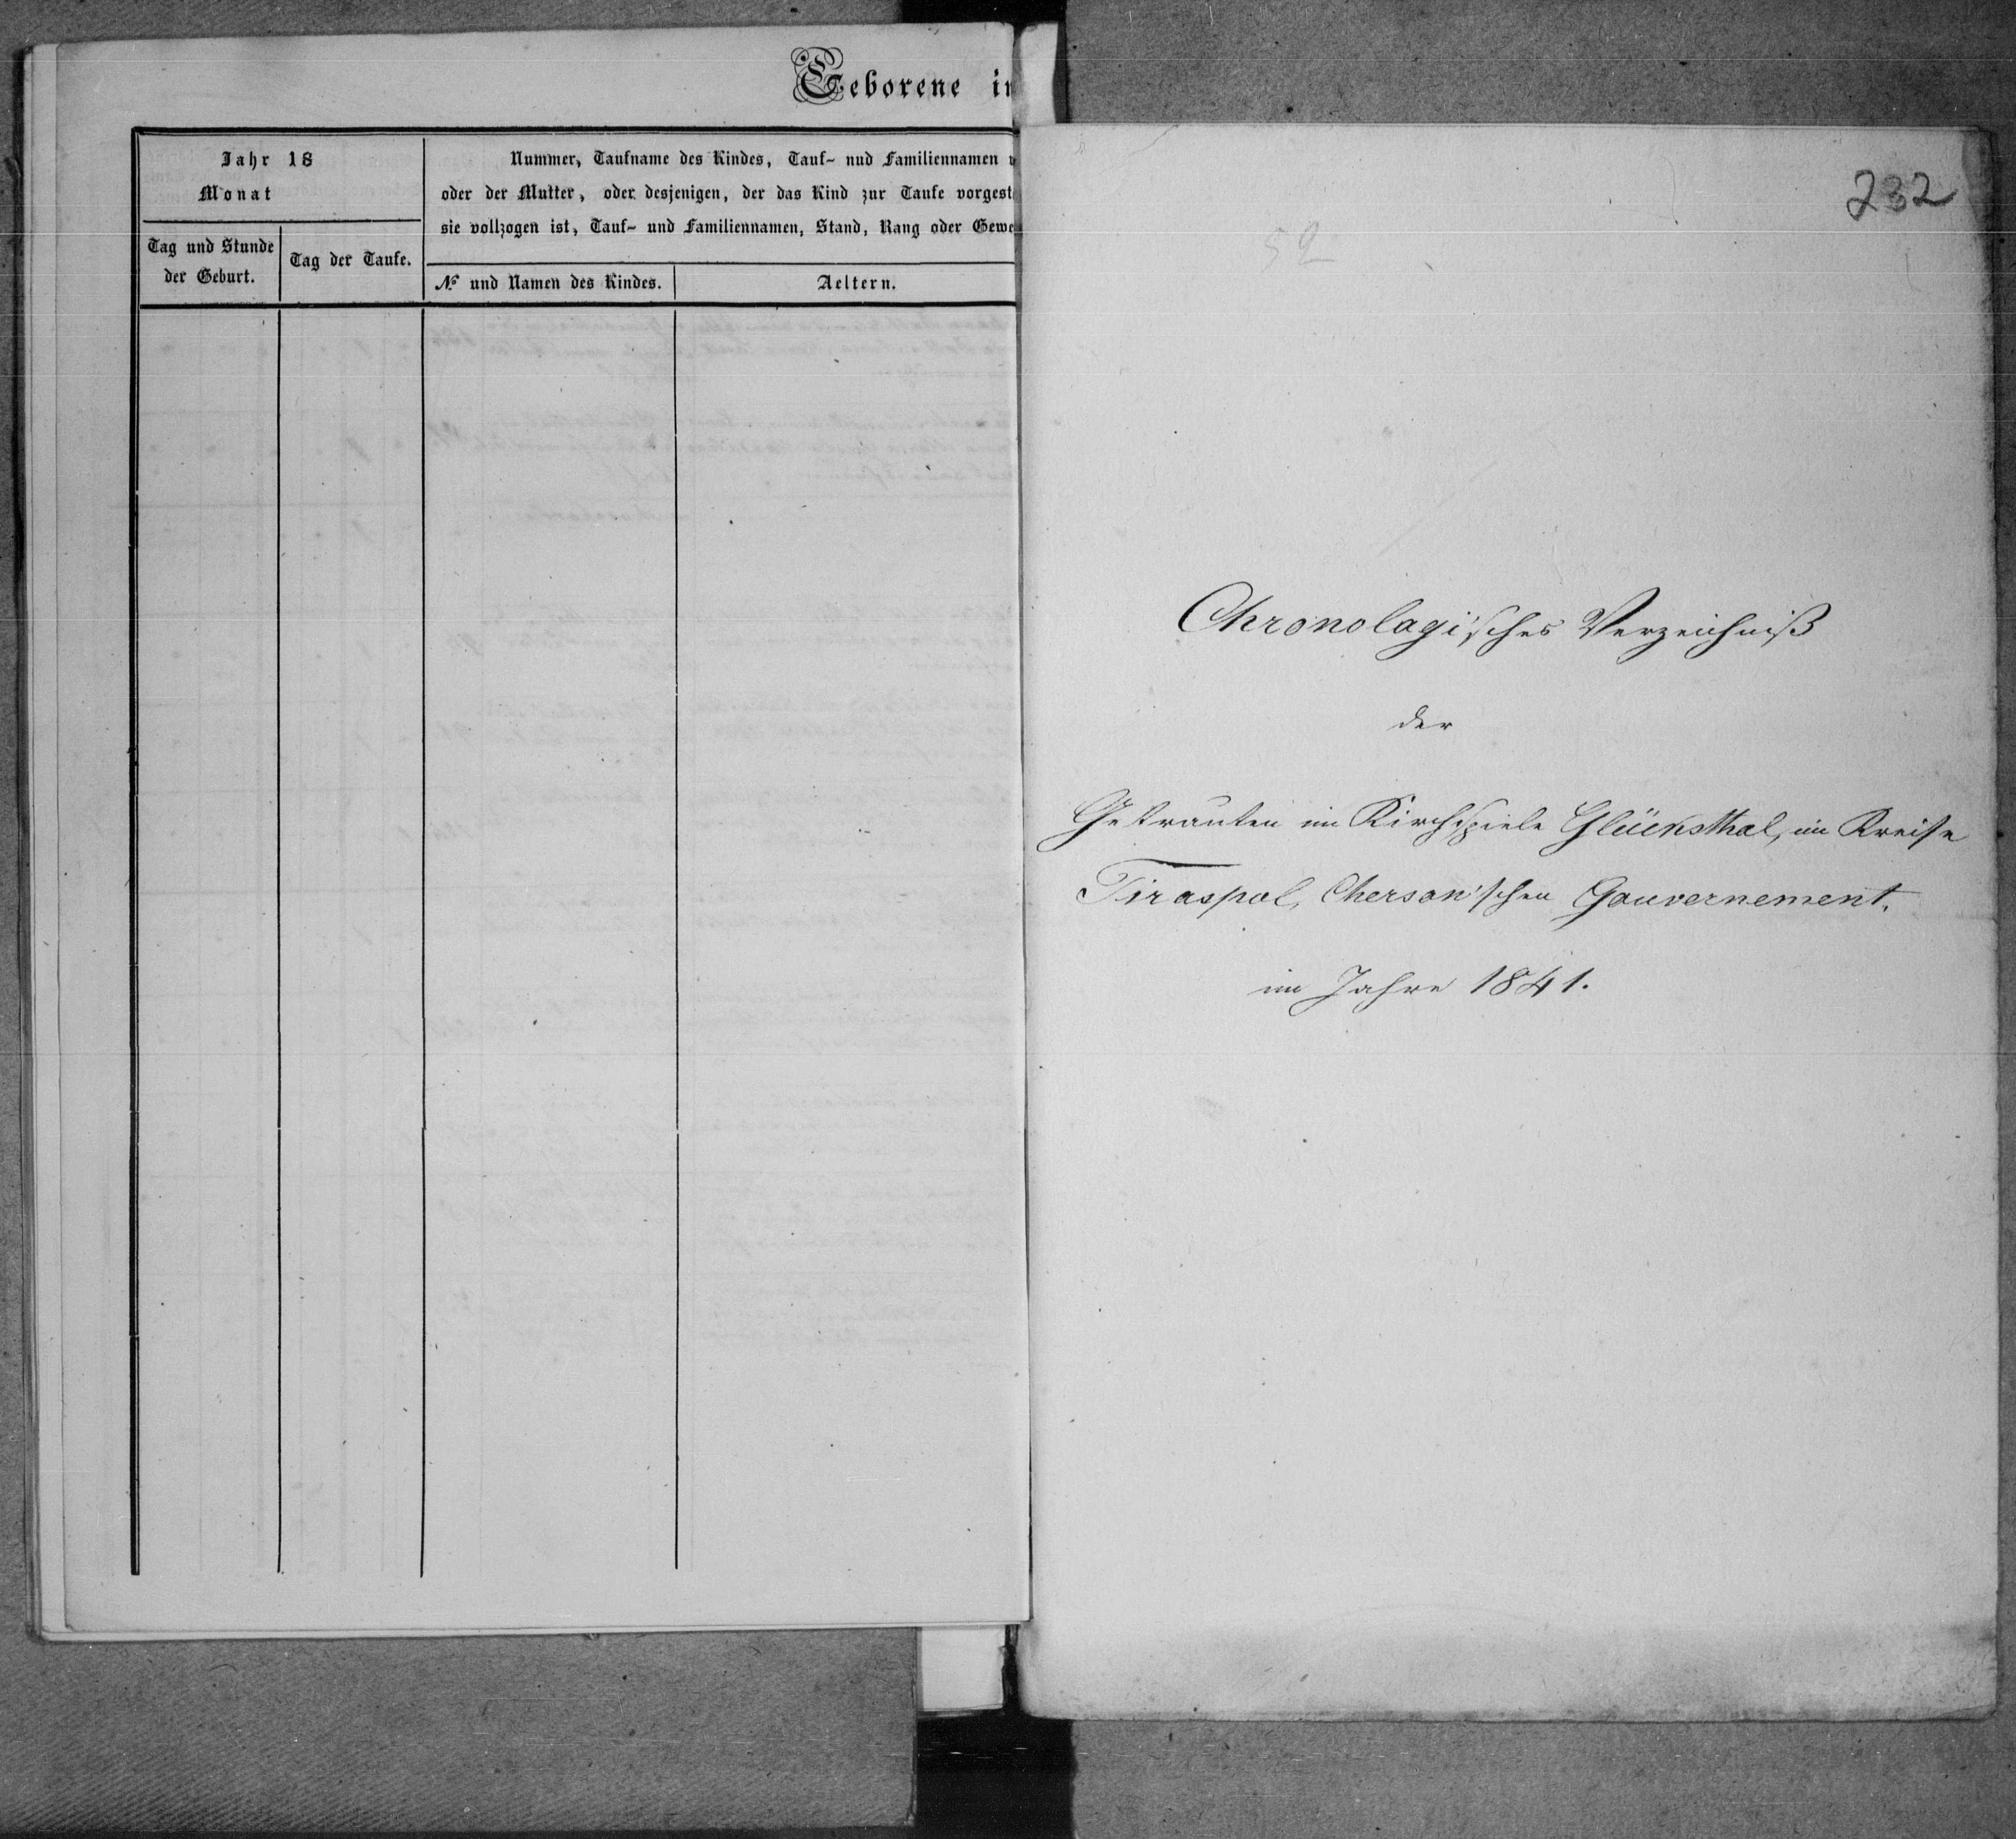 Geborene in
Jahr 18
Monat
Tag und Stunde
der Geburt.
Tag der Taufe.
Nummer, Taufname des Kindes, Tauf- nud Familiennamen
oder der Mutter, oder desjenigen, der das Kind zur Taufe vorgest
sie vollzogen ist, Tauf- und Familiennamen, Stand, Rang oder Gewe
№ und Namen des Kindes.
Aeltern.
232
52
Chronologisches Verzeichniß
der
Getrauten im Kirchspiele Glücksthal, im Kreise
Tiraspol, Cherson'schen Gouvernement.
im Jahre 1841.